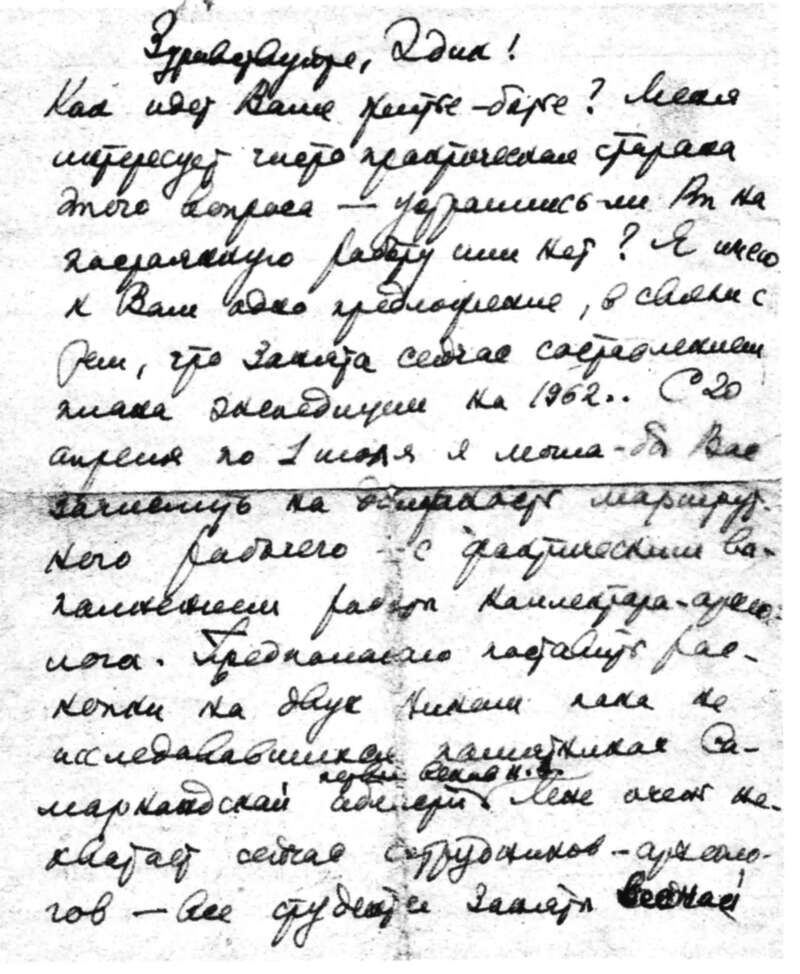 Здравствуйте, Эдик!
Как идет Ваше житье-бытье? Меня
интересует чисто практическая сторона
этого вопроса — устроились-ли Вы на
постоянную работу или нет? Я имею
к Вам одно предложение, в связи с
тем, что занята сейчас составлением
плана экспедиции на 1962.. С 20
апреля по 1 июля я могла-бы Вас
зачислить на должность маршрут-
ного рабочего - с фактическим вы-
полнением работы коллектора-архео-
лога. Предполагаю поставить рас-
копки на двух никем пока не
исследовавшихся памятниках Са-
первых веков н.э.
маркандской области. Мне очень не-
хватает сейчас сотрудников-архeоло-
гов — все студенты заняты весной